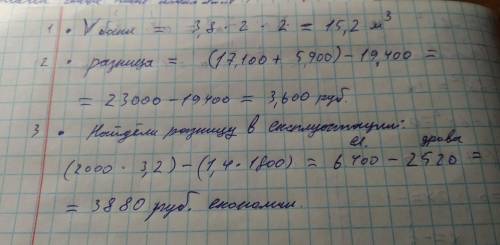 1. V бани = 3,8 · 2 · 2 = 15,2 м³
2. разница = (17,100 + 5,900) - 19,400 =
= 23000 - 19400 = 3,600 руб.
3. Найдём разницу в експлуотации:
эл. дрова
(2000 · 3,2) - (1,4 · 1800) = 6400 - 2520 =
= 3880 руб. економии.